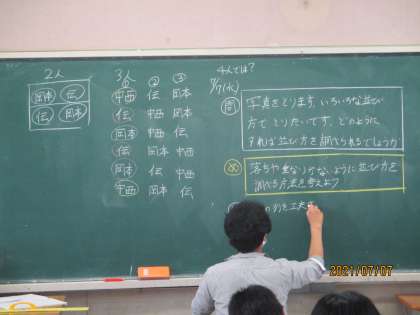 2人
岡本 伝
伝 岡本
3人
① ② ③
中西 伝 岡本
伝 中西 岡本
岡本 中西 伝
伝 岡本 中西
岡本 伝 中西
中西 岡本 伝
4人では?
7/7(水)
問 写真をとります。いろいろな並び
方でとりたいです。どのように
すれば並び方を調べられるでしょうか
め 落ちや重なりがないように並び方を
調べる方法を考えよう
の列を工夫
2021/07/07